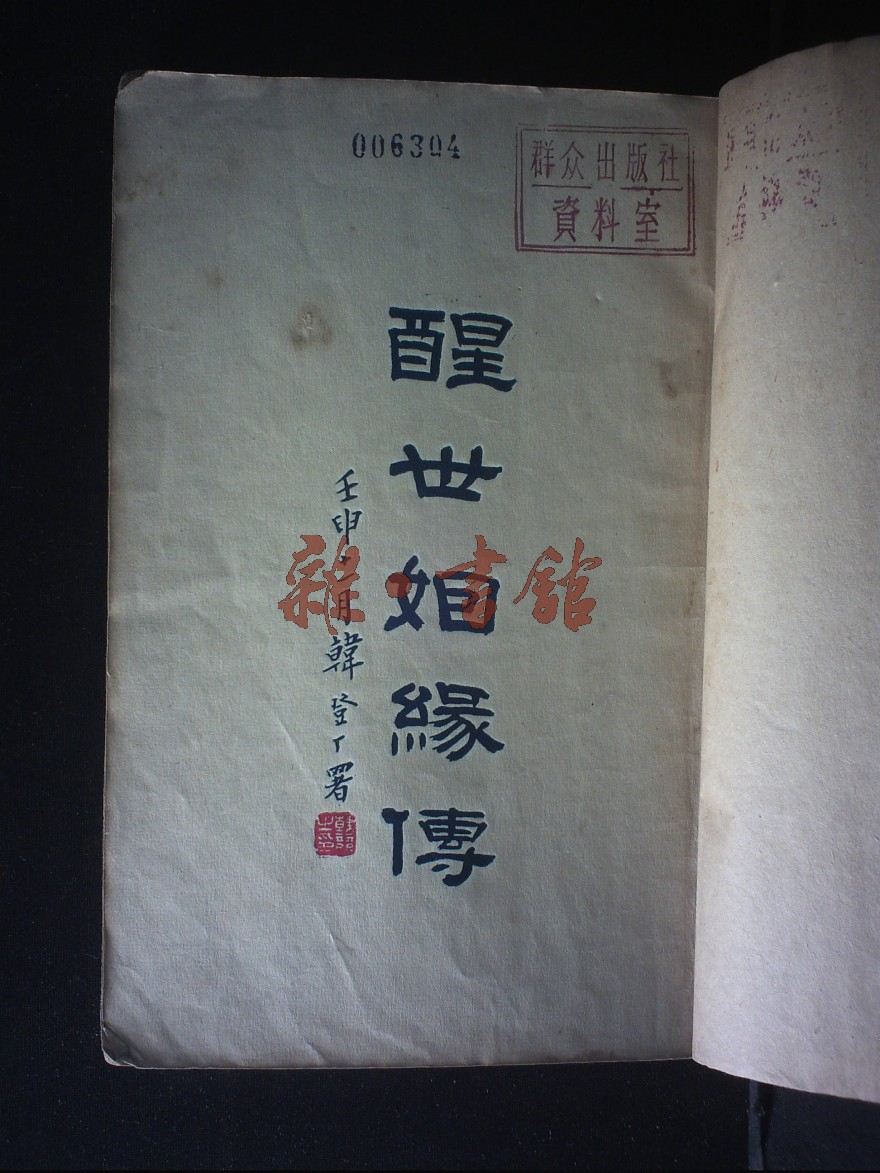 006304
群众出版社
資料室
醒世姻緣傳
壬申 月韓登 署
雜·書館